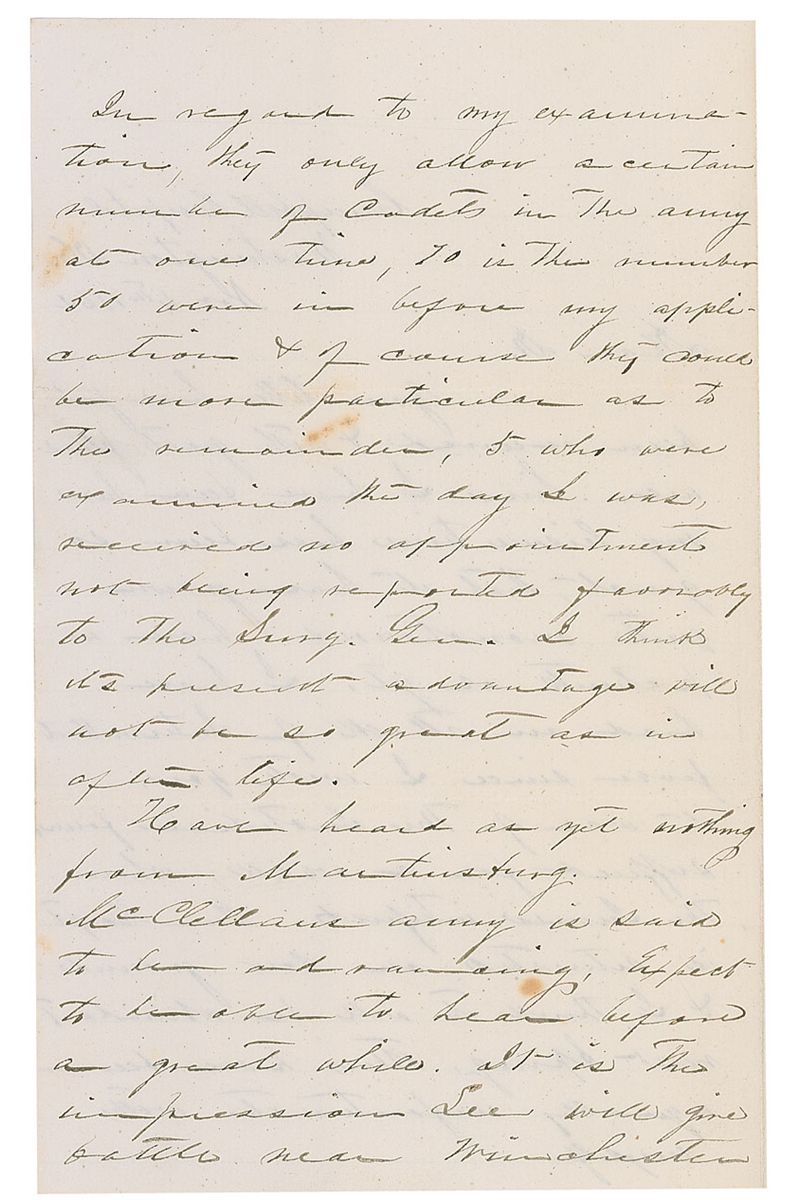 In regard to my examina-
tion, they only allow a certain
number of Cadets in the army
at one time, 70 is the number
50 were in before my appli-
cation & of course they could
be more particular as to
the remainder, 5 who were
examined the day I was,
received no appointment
not being reported favorably
to the Surg. Gen. I think
it's present advantage will
not be so great as in
after life.
Have heard as yet nothing
from Martinsburg.
McClellans army is said
to be advancing, Expect
to be able to hear before
a great while. It is the
impression Lee will give
battle near Winchester